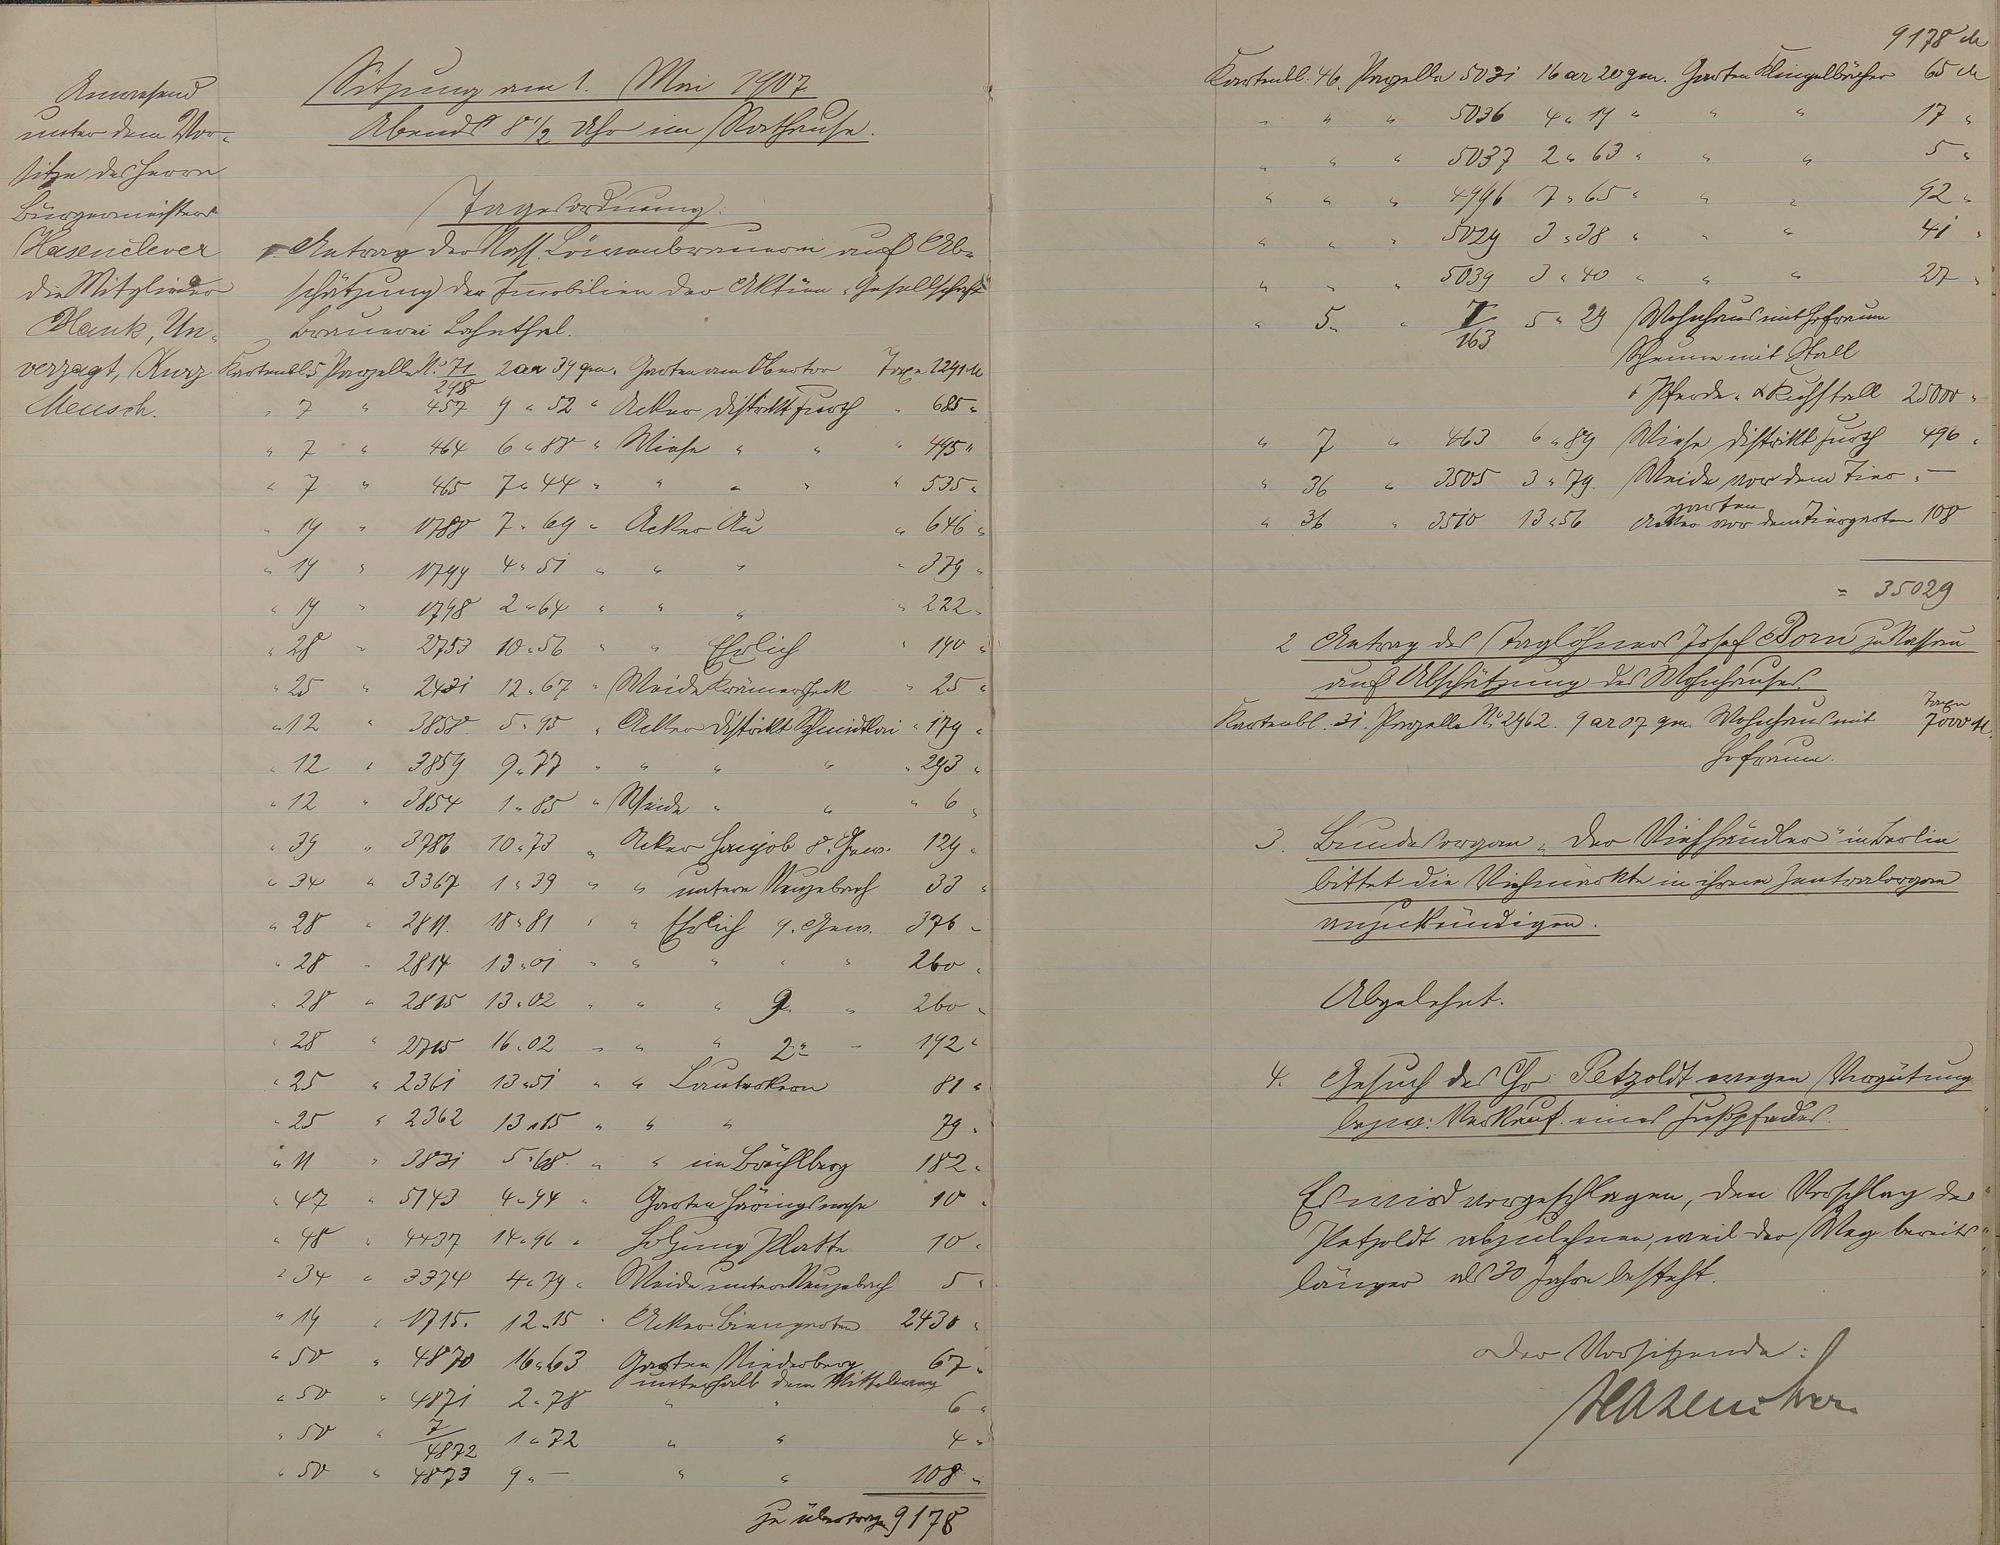 Anwesend
unter dem Vor-
sitze des Herrn
Bürgermeisters
Hasenclever
die Mitglieder
Plank, Un-
verzagt, Kurz
Meusch.
Sitzung am 1. Mai 1907
Abends 8 1/2 Uhr im Rathause.
Tagesordnung:
1. Antrag der Nass. Löwenbrauerei auf Ab-
schätzung der Immobilien der Aktien-Gesellschaft
Brauerei Lahnthal.
Kartenbl. 5 Parzelle No. 71/248 2 ar 39 qm. Garten am Obertor Taxe 1241 M
" 7 " 457 9 " 52 " Acker Distrikt Furth " 685 "
" 7 " 464 6 " 88 " Wiese " " " 495 "
" 7 " 465 7 " 44 " " " " " 535 "
" 19 " 1788 7 " 69 " Acker Au " 646 "
" 19 " 1799 4 " 51 " " " " 379 "
" 19 " 1798 2 " 64 " " " " 222 "
" 28 " 2753 10 " 56 " " Ehrlich " 190 "
" 25 " 2431 12 " 67 " Weide Krämersheck " 25 "
" 12 " 3858 5 " 95 " Acker Distrikt " 179 "
" 12 " 3859 9 " 77 " " " " " 293 "
" 12 " 3854 1 " 85 " Weide " " " 6 "
" 39 " 3786 10 " 73 " Acker 8. Gew. 129 "
" 34 " 3367 1 " 39 " " untere 33 "
" 28 " 2811 18 " 81 " " Ehrlich 9. Gew. 376 "
" 28 " 2814 13 " 01 " " " " " 260 "
" 28 " 2815 13 " 02 " " " 9 " 260 "
" 28 " 2715 16 " 02 " " " 2 " 192 "
" 25 " 2361 13 " 51 " " Lauterkorn 81 "
" 25 " 2362 13 " 15 " " " 79 "
" 11 " 3831 5 " 68 " " im 182 "
" 47 " 5143 4 " 94 " Garten Häringsnase 10 "
" 48 " 4437 14 " 96 " Holzung Platte 10 "
" 34 " 3374 4 " 79 " Weide untere 5 "
" 19 " 1715 12 " 15 " Acker Biengarten 2430 "
" 50 " 4870 16 " 63 Garten Niederberg 67 "
unterhalb dem Mittelweg
" 50 " 4871 2 " 78 " " 6 "
" 50 " 7/4872 1 " 72 " " 4 "
" 50 " 4873 9 " — " " 108 "
zu übertragen 9178
9178 M
Kartenbl. 46. Parzelle 5031 16 ar 20 qm. Garten Klingelbächer 65 M
" " " 5036 4 " 19 " " " 17 "
" " " 5037 2 " 63 " " " 5 "
" " " 4996 7 " 65 " " " 92 "
" " " 5029 3 " 38 " " " 41 "
" " " 5039 3 " 40 " " " 27 "
" 5 " " 7/163 5 " 29 Wohnhaus mit Hofraum
Scheune mit Stall
Pferde- & Kuhstall 25000 "
" 7 " 463 6 " 89 Wiese Distrikt Furth 496 "
" 36 " 3505 3 " 79 Weide vor dem Tier- " —
garten
" 36 " 3510 13 " 56 Acker vor dem Tiergarten 108
= 35029
2 Antrag des Taglöhners Josef Born zu Nassau
auf Abschätzung des Wohnhauses.
Taxe
Kartenbl. 31. Parzelle No. 2962. 9 ar 07 qm Wohnhaus mit 7000 M.
Hofraum.
3. Bundesorgan "Der Viehhändler" in Berlin
bittet die Viehmärkte in ihrem Zentralorgan
anzukündigen.
Abgelehnt.
4. Gesuch des Chr. Petzoldt wegen Vergütung
bezw: Verkauf eines Fußpfades.
Es wird vorgeschlagen, den Vorschlag des
Petzoldt abzulehnen, weil der Weg bereits
länger als 30 Jahre besteht.
Der Vorsitzende:
Hasenclever.